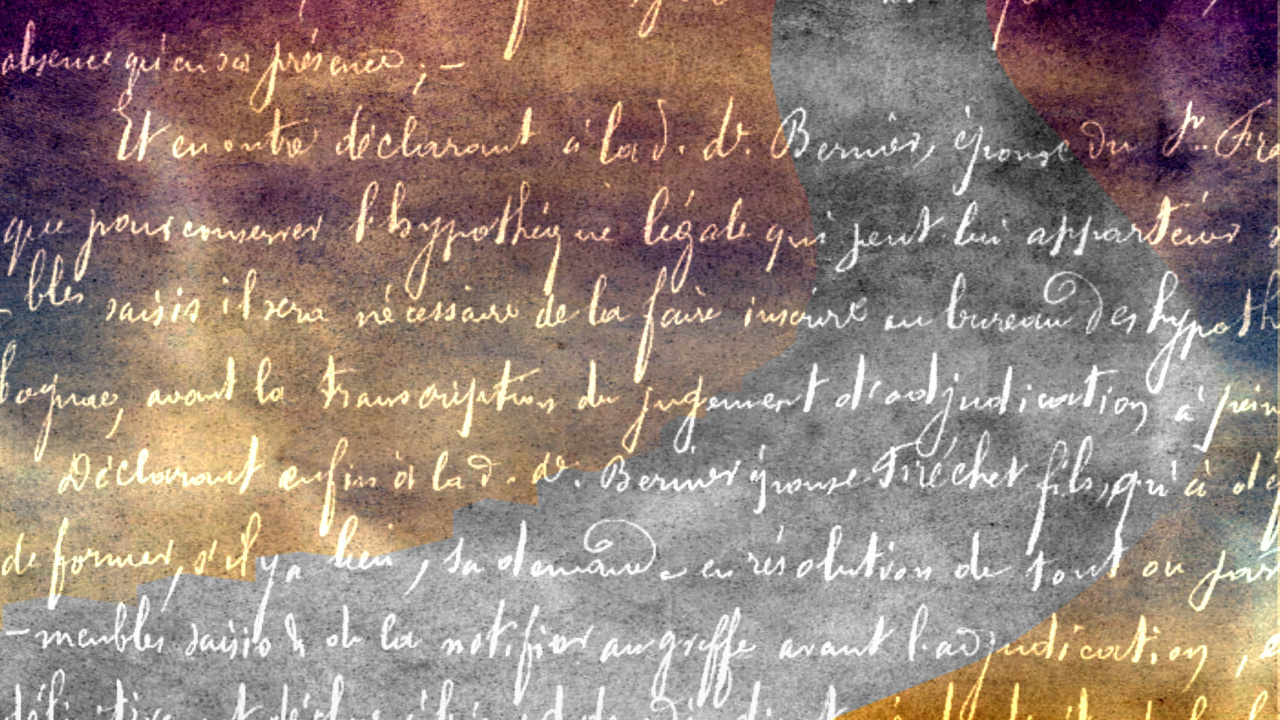 absence qu'en sa présence ; —
Et en outre déclarant à la d. de. Bernier, épouse du Sr. Fre
que pour conserver l'hypothéque légale qui peut lui appartenir
- bles saisis il sera nécessaire de la faire inscrire au bureau des hypoth
avant la transcription du jugement d'adjudication à pein
Déclarant enfin à la d. de. Bernier épouse Fréchet fils, qu'à dé
de former, s'il y a lieu, sa demande en résolution de tout ou par
- meubles saisis & de la notifier au greffe avant l'adjudication,